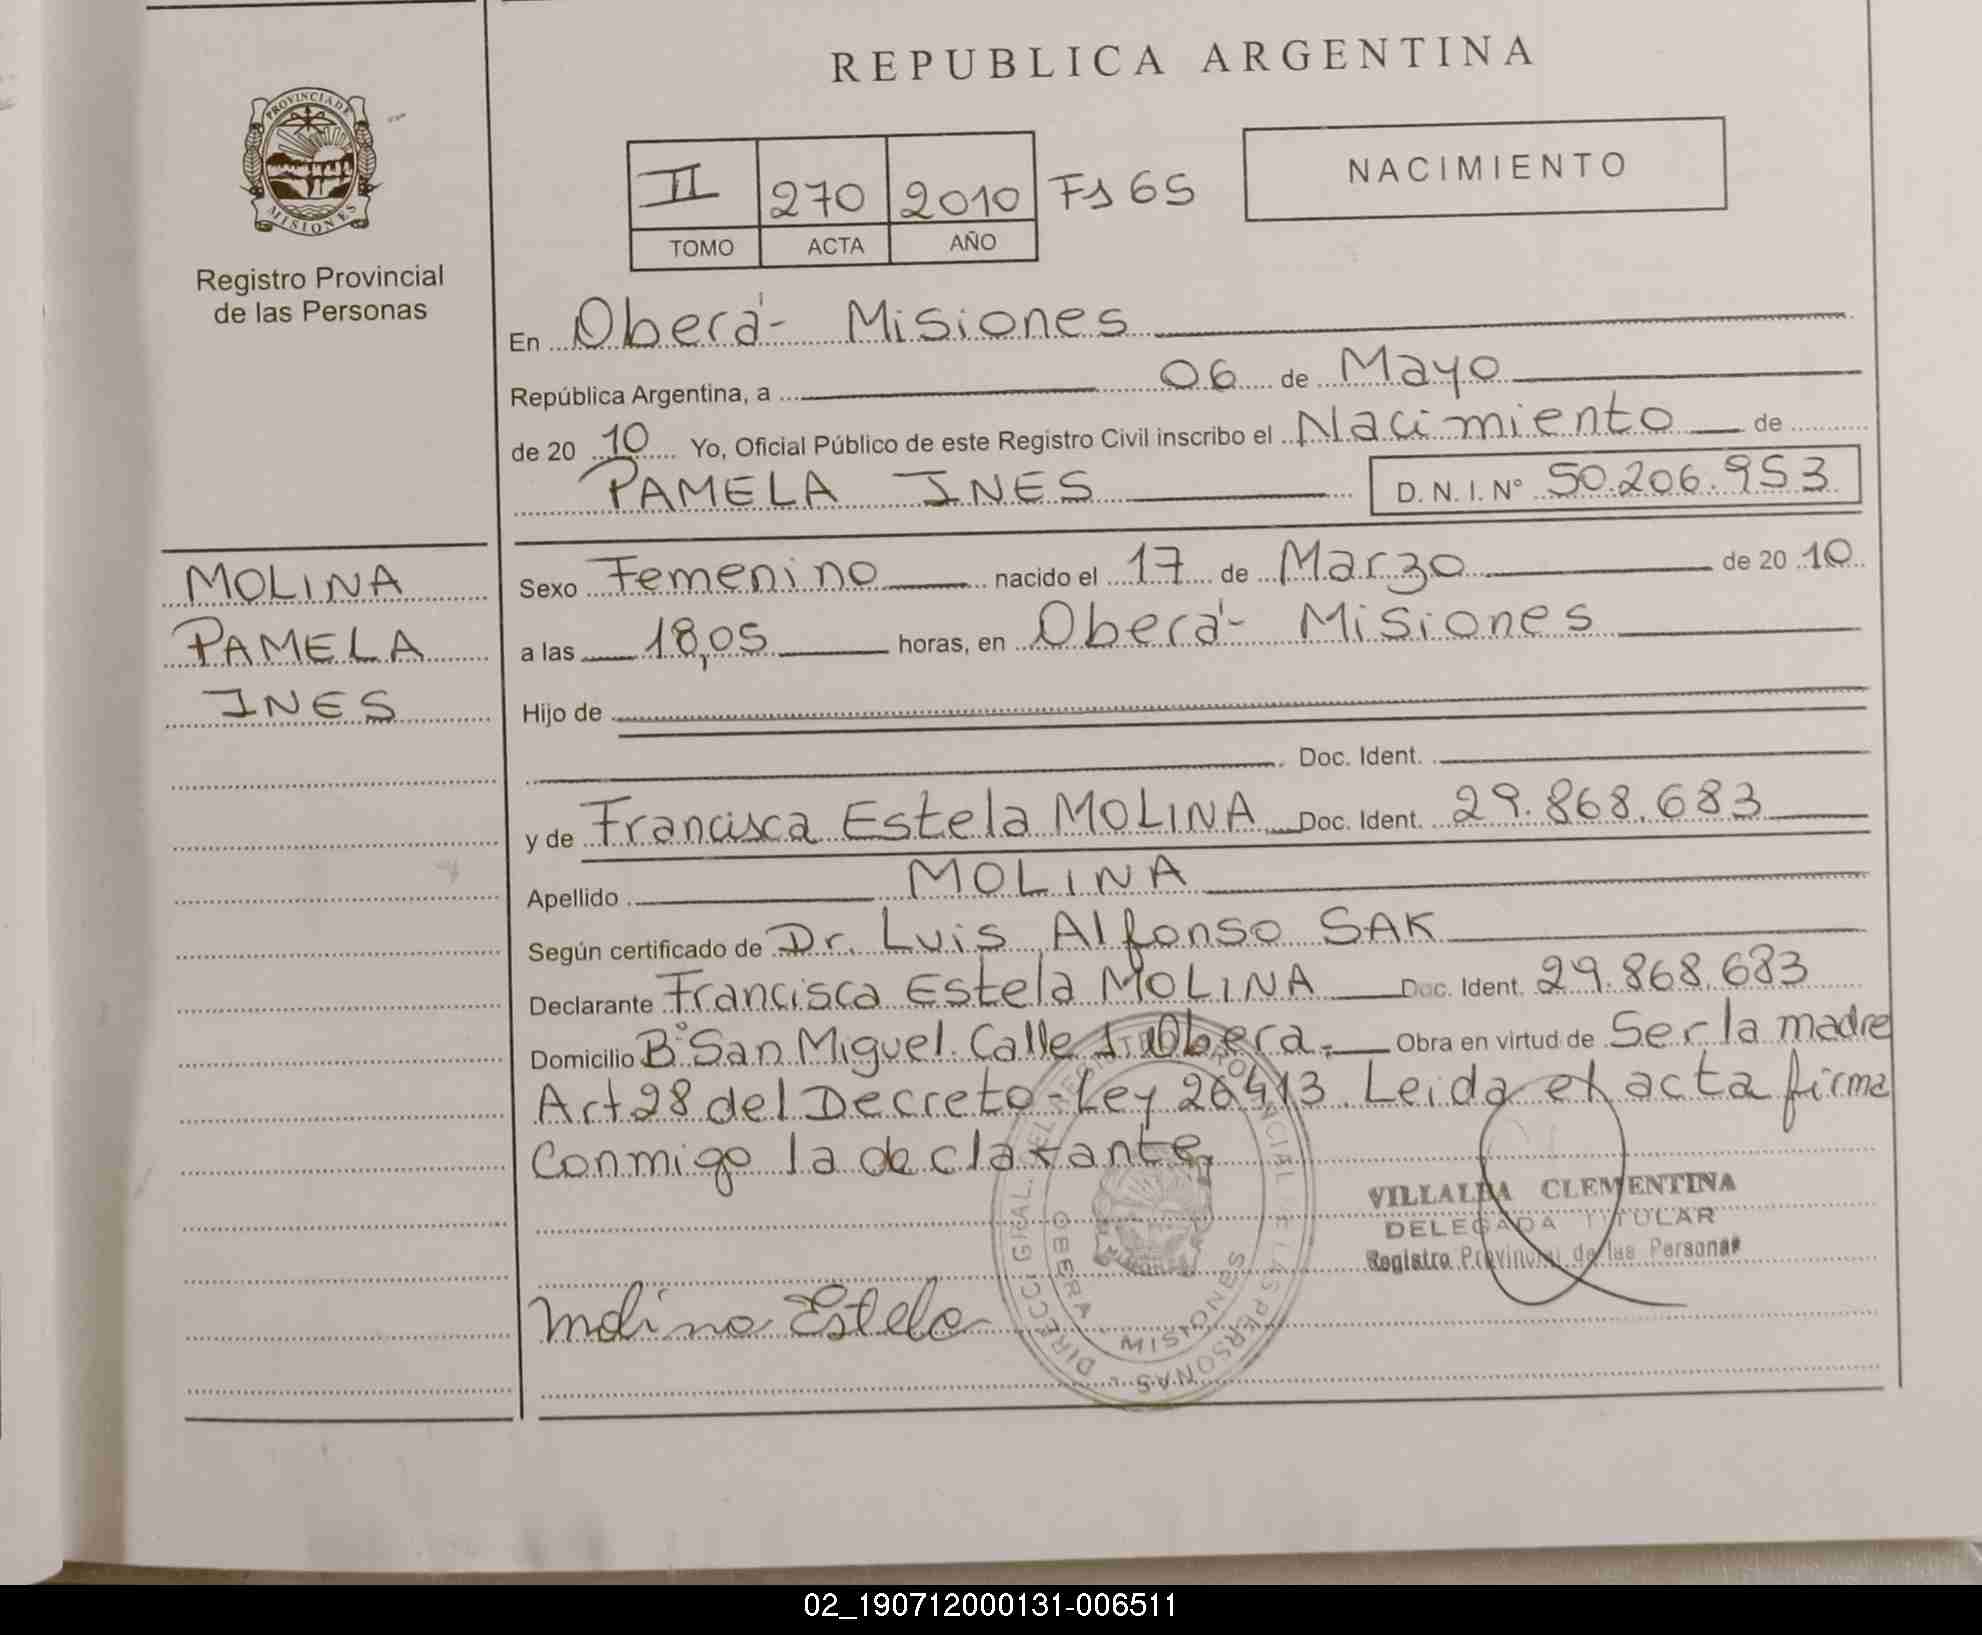 REPUBLICA ARGENTINA
PROVINCIA DE
MISIONES
Registro Provincial
de las Personas
II 270 2010 Fs 65
TOMO ACTA AÑO
NACIMIENTO
En Oberá- Misiones
República Argentina, a 06 de Mayo
de 20 10 Yo, Oficial Público de este Registro Civil inscribo el Nacimiento de
PAMELA INES D.N.I. Nº 50.206.953
MOLINA
PAMELA
INES
Sexo Femenino nacido el 17 de Marzo de 20 10
a las 18,05 horas, en Oberá- Misiones
Hijo de
Doc. Ident.
y de Francisca Estela MOLINA Doc. Ident. 29.868.683
Apellido MOLINA
Según certificado de Dr. Luis Alfonso SAK
Declarante Francisca Estela MOLINA Doc. Ident. 29.868.683
Domicilio Bº San Miguel. Calle 1. Obera. Obra en virtud de Ser la madre
Art 28 del Decreto-Ley 26413. Leida el acta firma
Conmigo la declarante.
VILLALBA CLEMENTINA
DELEGADA TITULAR
Registro Provincial de las Personas
Molina Estela
DIRECC. GRAL. DEL REGISTRO PROVINCIAL DE LAS PERSONAS
OBERA MISIONES
02_190712000131-006511